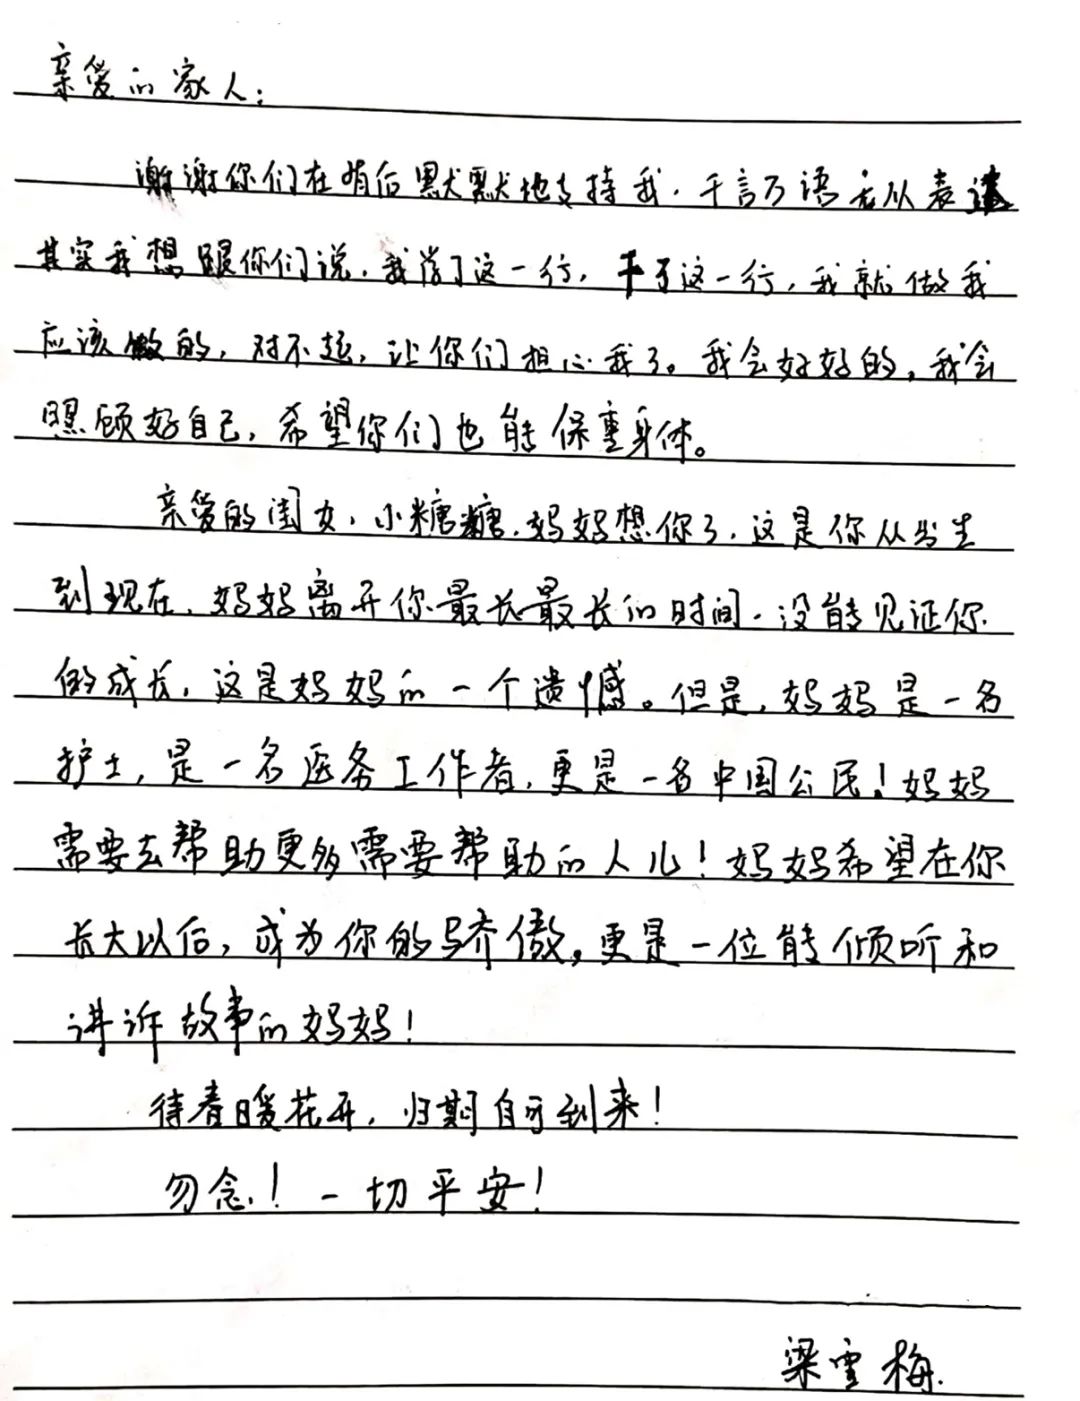 亲爱的家人:
谢谢你们在背后默默地支持我.千言万语无从表达
其实我想跟你们说,我学了这一行,干了这一行,我就做我
应该做的,对不起,让你们担心我了。我会好好的,我会
照顾好自己,希望你们也能保重身体。
亲爱的闺女,小糖糖,妈妈想你了,这是你从出生
到现在,妈妈离开你最长最长的时间.没能见证你
的成长,这是妈妈的一个遗憾。但是,妈妈是一名
护士,是一名医务工作者,更是一名中国公民!妈妈
需要去帮助更多需要帮助的人儿!妈妈希望在你
长大以后,成为你的骄傲,更是一位能倾听和
讲诉故事的妈妈!
待春暖花开,归期自可到来!
勿念!一切平安!
梁雪梅.